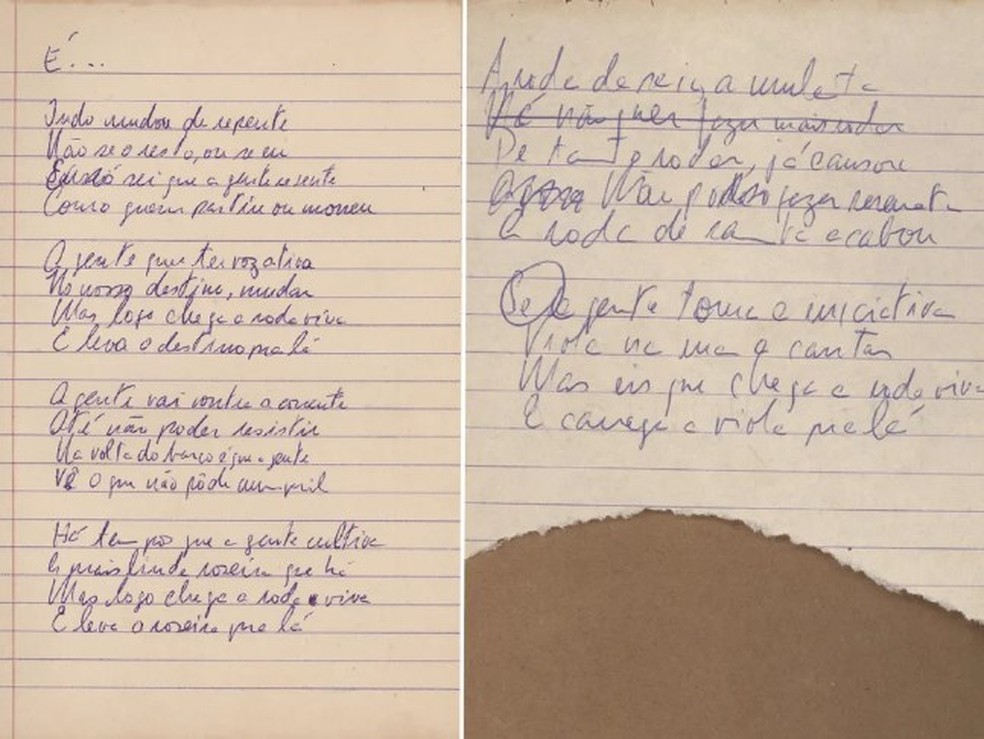 É...
Tudo mudou de repente
Não sei o resto, ou se eu
Eu só sei que a gente sente
Como quem partiu ou morreu
A gente quer ter voz ativa
No nosso destino, mudar
Mas logo chega a roda viva
E leva o destino pra lá
A gente vai contra a corrente
Até não poder resistir
Na volta do barco é que a gente
Vê o que não pôde cumprir
Há tempos que a gente cultiva
A mais linda roseira que há
Mas logo chega a roda viva
E leva a roseira pra lá
A roda da saia, a mulata
Já não quer fazer mais rodar
De tanto rodar, já cansou
Não posso fazer serenata
A roda de samba acabou
Se a gente toma a iniciativa
Viola na rua a cantar
Mas eis que chega a roda viva
E carrega a viola pra lá